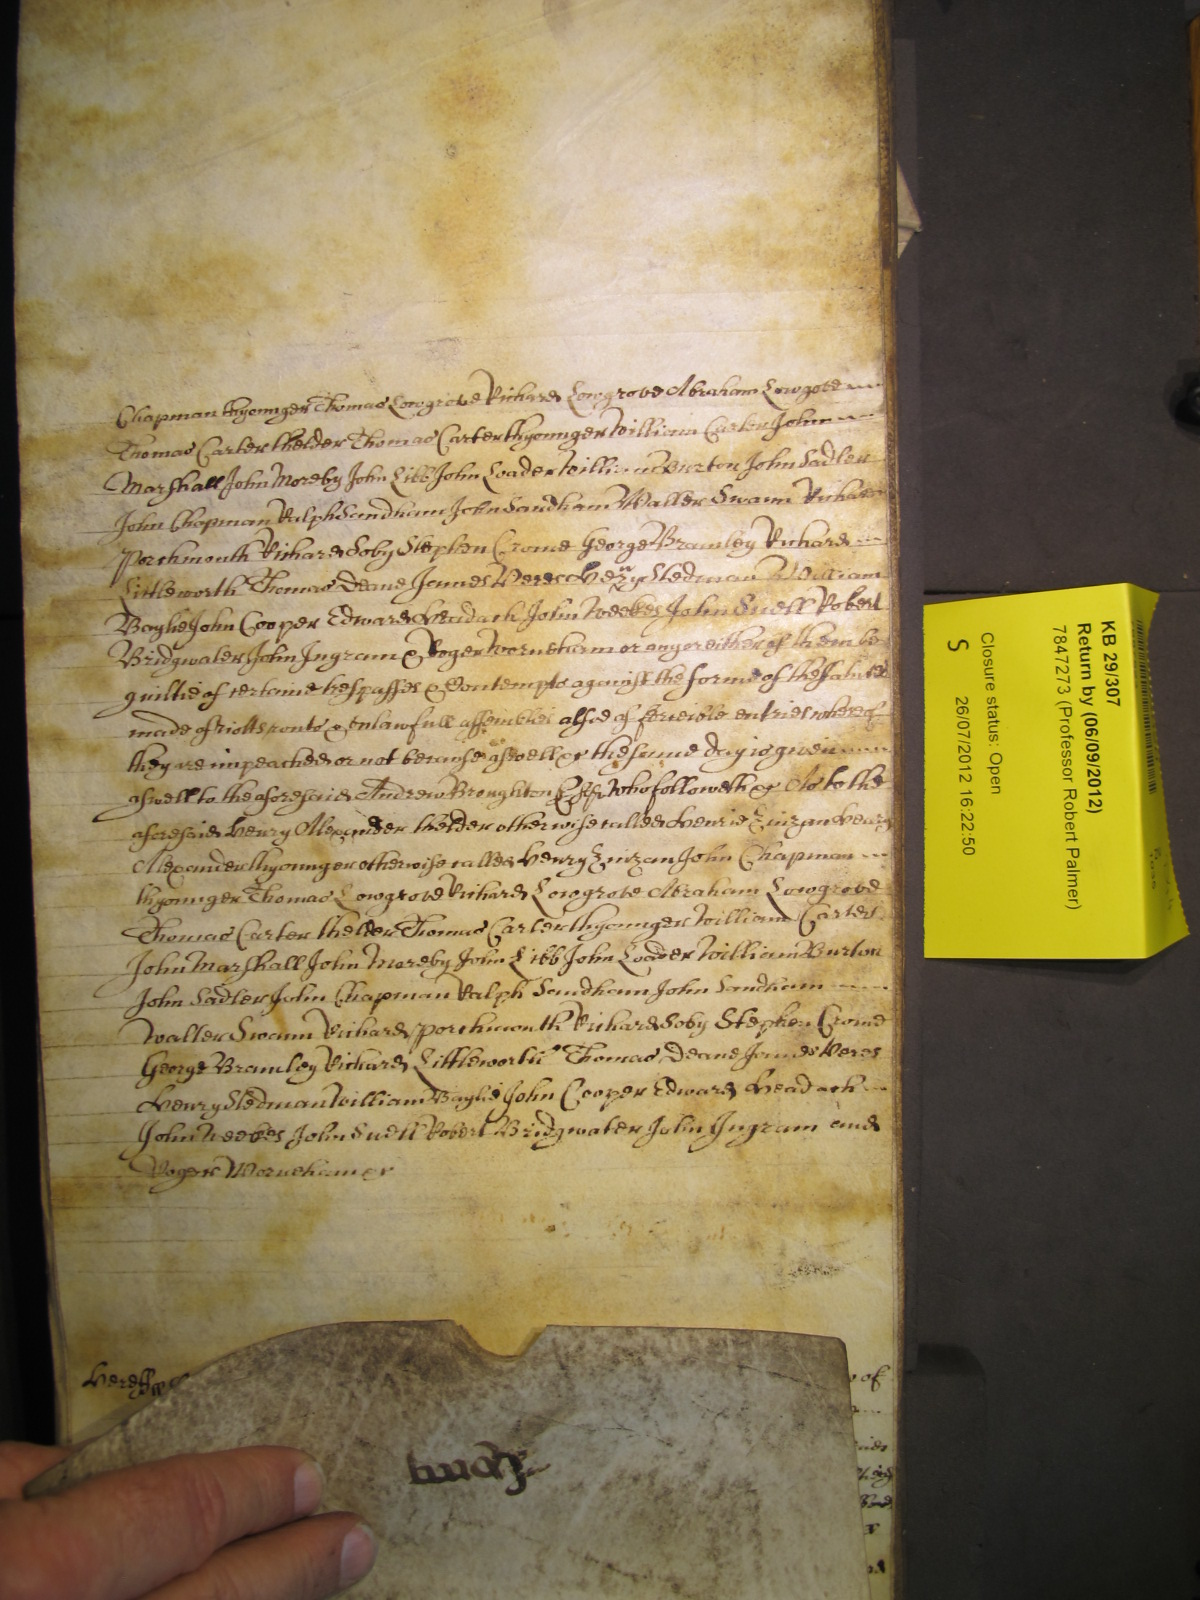 Chapman thyounger Thomas Lowgrove Richard Lowgrove Abraham Lowgrove
Thomas Carter thelder Thomas Carter thyounger William Carter John
Marshall John Moreby John Libb John Loader William Burton John Sadler
John Chapman Ralph Sandham John Sandham Walter Swann Richard
Porchmouth Richard Soby Stephen Crome George Bramley Richard
Littleworth Thomas Deane James Veres Henry Stedman William
Baylie John Cooper Edward Headach John Weekes John Snell Robert
Bridgwater John Ingram & Roger Wornham or any or either of them be
guiltie of certaine trespasses & Contempts against the forme of the statutes
made of riotts routs & unlawfull assemblies alsoe of forcible entries whereof
they are impeached or not because aswell &c the same day is given
aswell to the aforesaid Andrew Broughton Esqr who followeth &c As to the
aforesaid Henry Alexander thelder otherwise called Henrie Zinzan Henry
Alexander thyounger otherwise called Henry Zinzan John Chapman
thyounger Thomas Lowgrove Richard Lowgrove Abraham Lowgrove
Thomas Carter thelder Thomas Carter thyounger William Carter
John Marshall John Moreby John Libb John Loader William Burton
John Sadler John Chapman Ralph Sandham John Sandham
Walter Swann Richard Porchmouth Richard Soby Stephen Crome
George Bramley Richard Littleworth Thomas Deane James Veres
Henry Stedman William Baylie John Cooper Edward Headach
John Weekes John Snell Robert Bridgwater John Ingram and
Roger Wornham &c
of
KB 29/307
Return by (06/09/2012)
7847273 (Professor Robert Palmer)
Closure status: Open
S 26/07/2012 16:22:50